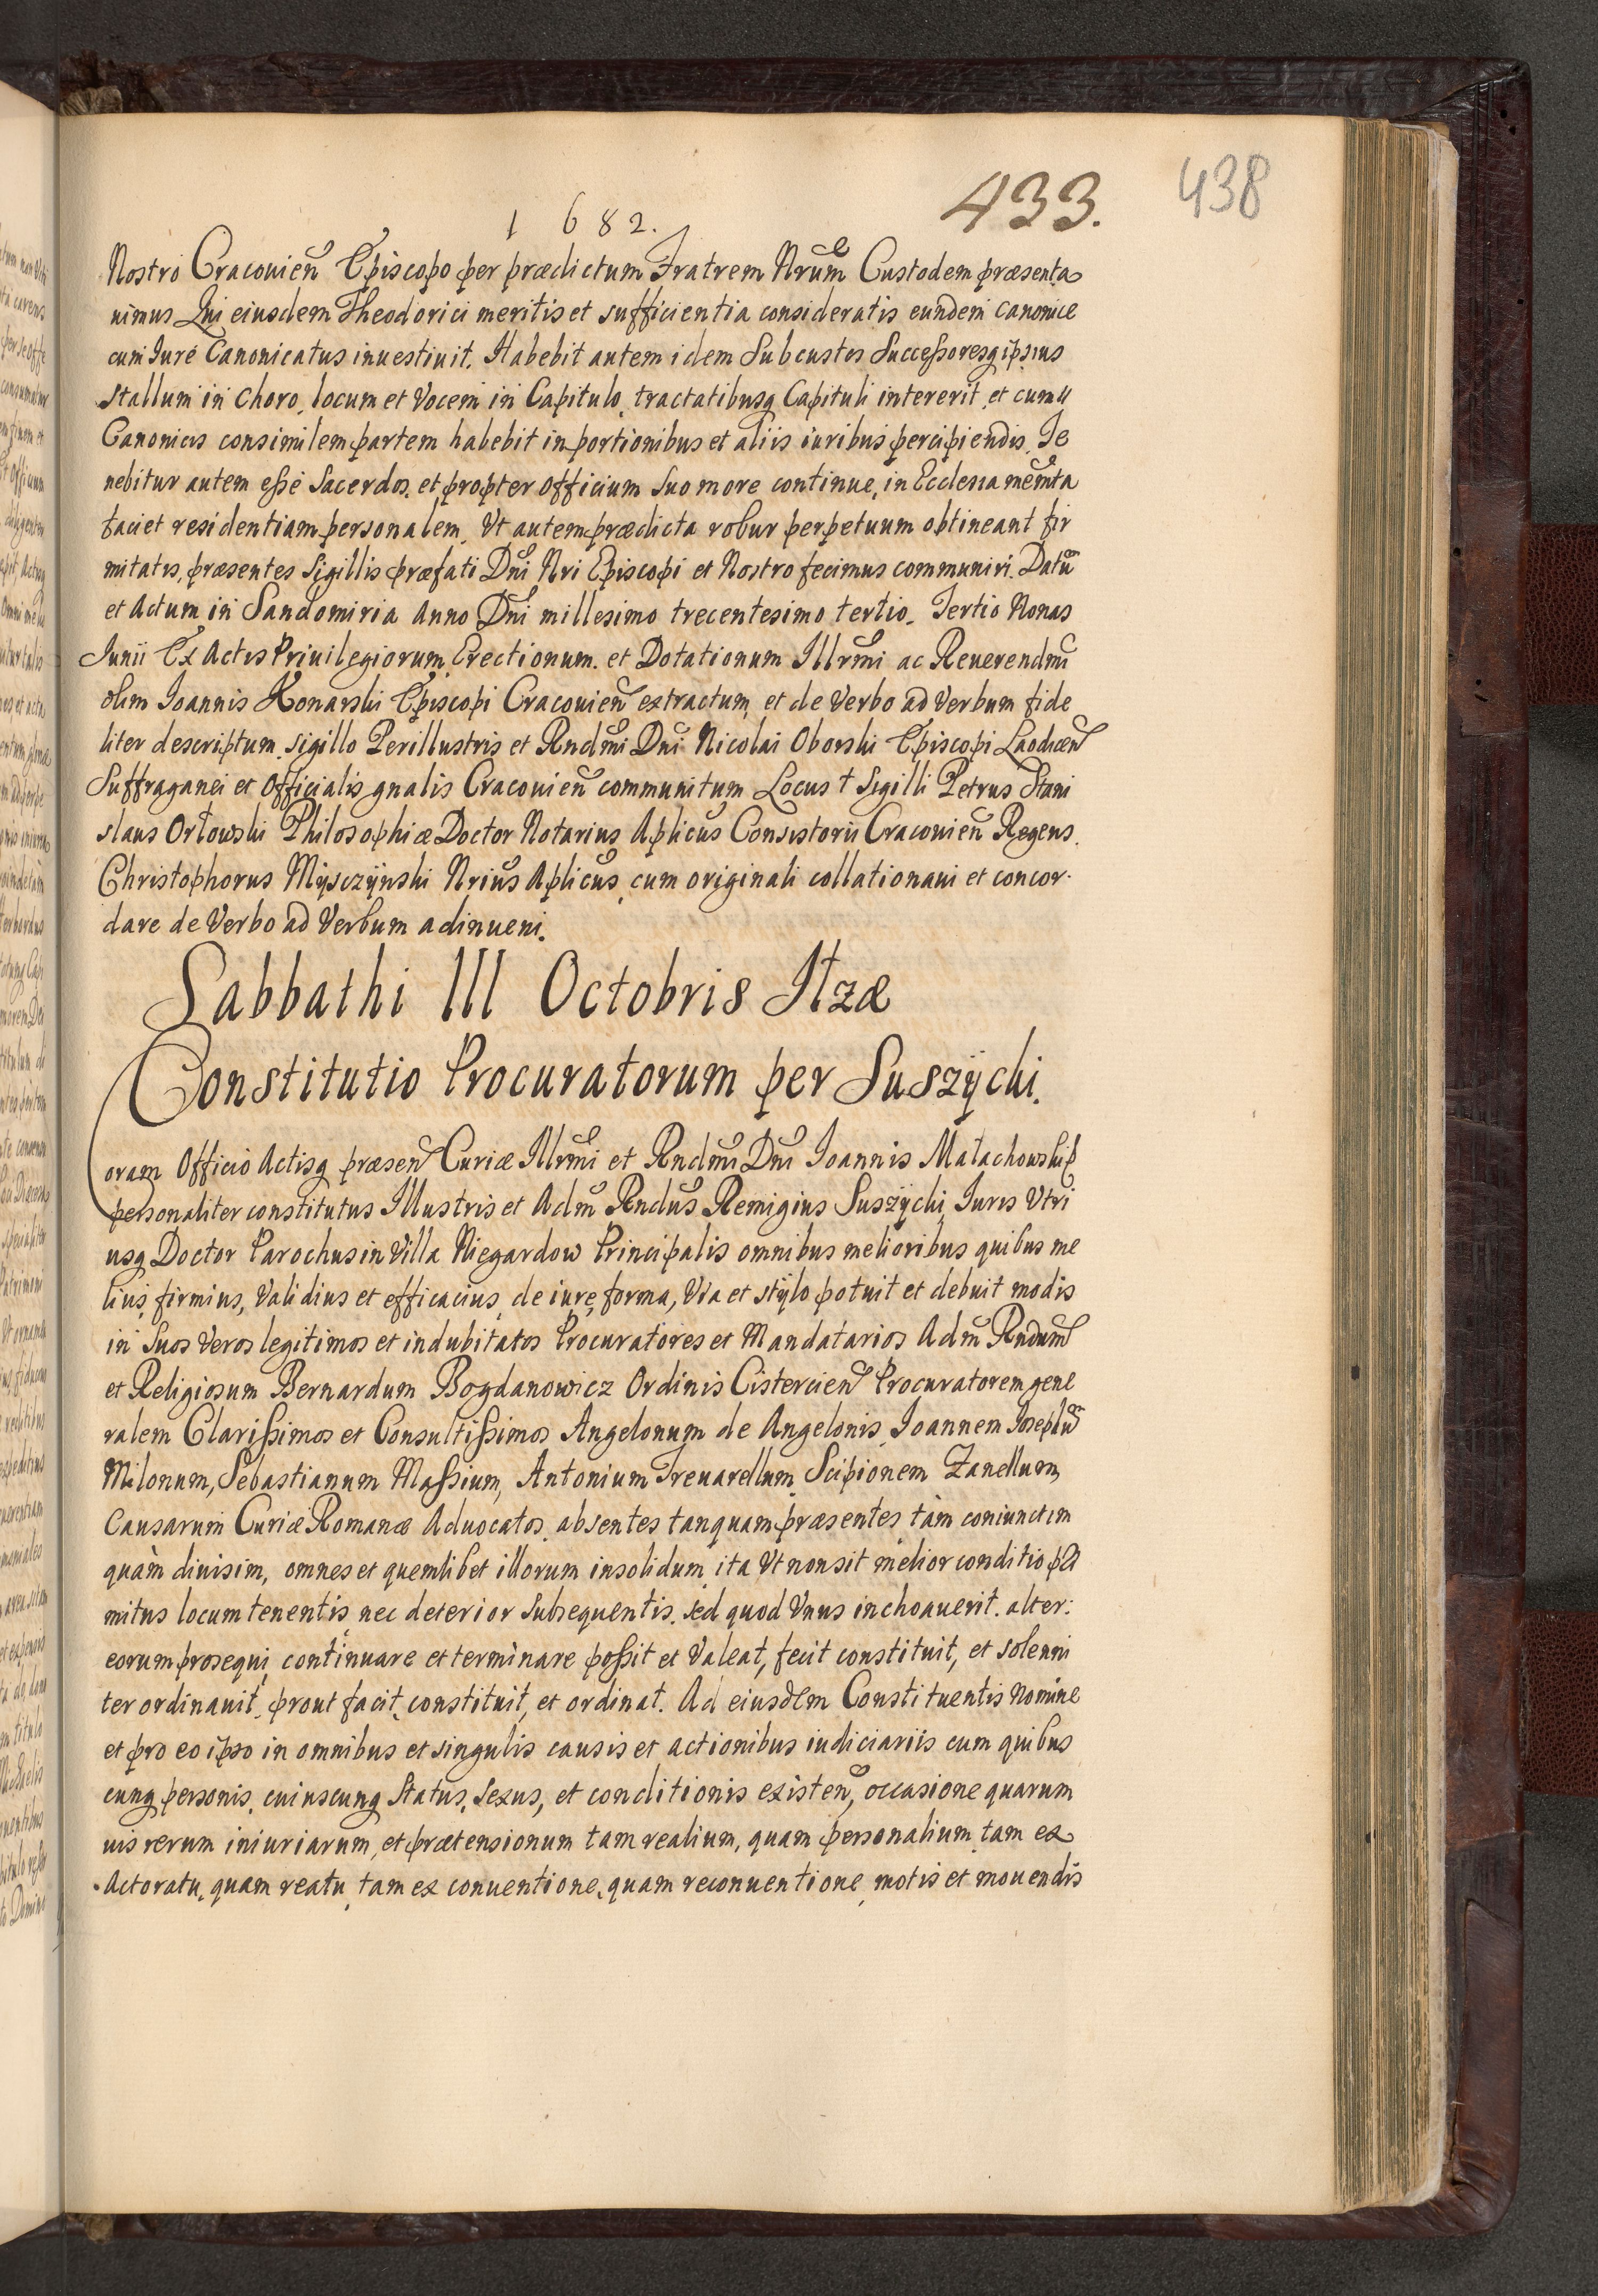 433. 438
1682.
Nostro Cracouien̄ Episcopo per prædictum Fratrem Nrum̄ Custodem præsenta
uimus Qui eiusdem Theodorici meritis et sufficientia consideratis eundem canonice
cum Iure Canonicatus inuestiuit. Habebit autem idem Subcustos Successoresq ipsius
stallum in choro, locum et Vocem in Capitulo, tractatibusq Capituli intererit, et cum
Canonicis consimilem partem habebit in portionibus et aliis iuribus percipiendis. Te
nebitur autem esse Sacerdos, et propter officium suo more continue, in Ecclesia mem̄ta
faciet residentiam personalem. Ut autem prædicta robur perpetuum obtineant fir
mitatis, præsentes sigillis præfati Dn̄i Nri Episcopi et Nostro fecimus communiri. Datū
et Actum in Sandomiria Anno Dn̄i millesimo trecentesimo tertio. Tertio Nonas
Junii Ex Actis Priuilegiorum, Erectionum. et Dotationum Illrm̄i ac Reuerendm̄i
olim Ioannis Konarski Episcopi Cracouien̄ extractum, et de Verbo ad Verbum fide
liter descriptum, sigillo Perillustris et Rndm̄i Dn̄i Nicolai Oborski Episcopi Laodicen̄
Suffraganei et Officialis gnalis Cracouien̄ communitum Locus † Sigilli Petrus Stani
slaus Orłowski Philosophiæ Doctor Notarius Aplicus̄ Consistorii Cracouien̄ Regens.
Christophorus Mÿsczÿnski Nrius̄ Aplicus̄ cum originali collationaui et concor-
dare de Verbo ad Verbum adinueni.
Sabbathi III Octobris Itzæ
Constitutio Procuratorum per Suszÿcki.
Coram Officio Actisq præsen̄ Curiæ Illrm̄i et Rndm̄i Dn̄i Ioannis Małachowski
personaliter constitutus Illustris et Adm̄ Rndus̄ Remigius Suszÿcki, Iuris Utri
usq Doctor Parochus in Villa Niegardow Principalis omnibus melioribus quibus me
lius, firmius, Validius et efficacius, de iure, forma, Via et stÿlo potuit et debuit modis
in Suos Veros legitimos et indubitatos Procuratores et Mandatarios Adm̄ Rndum̄
et Religiosum Bernardum Bogdanowicz Ordinis Cistercien̄ Procuratorem gene
ralem Clarissimos et Consultissimos Angelonum de Angelonis, Ioannem Josephū
Milonum, Sebastianum Massium, Antonium Treuarellum, Scipionem Zanellum,
Causarum Curiæ Romanæ Aduocatos, absentes tanquam præsentes, tàm coniunctim
quàm diuisim, omnes et quemlibet illorum insolidum, ita Ut non sit melior conditio
mitus locum tenentis, nec deterior subsequentis. sed quod Unus inchoauerit. alter:
eorum prosequi, continuare et terminare possit et Valeat, fecit constituit, et solenni
ter ordinauit, prout facit, constituit, et ordinat. Ad eiusdem Constituentis Nomine
et pro eo ipso in omnibus et singulis causis et actionibus iudiciariis cum quibus
cunq personis, cuiuscunq Status, Sexus, et conditionis existen̄, occasione quarum
uis rerum iniuriarum, et prætensionum tam realium, quam personalium, tam ex
Actoratu, quam reatu, tam ex conuentione, quam reconuentione, motis et mouendis